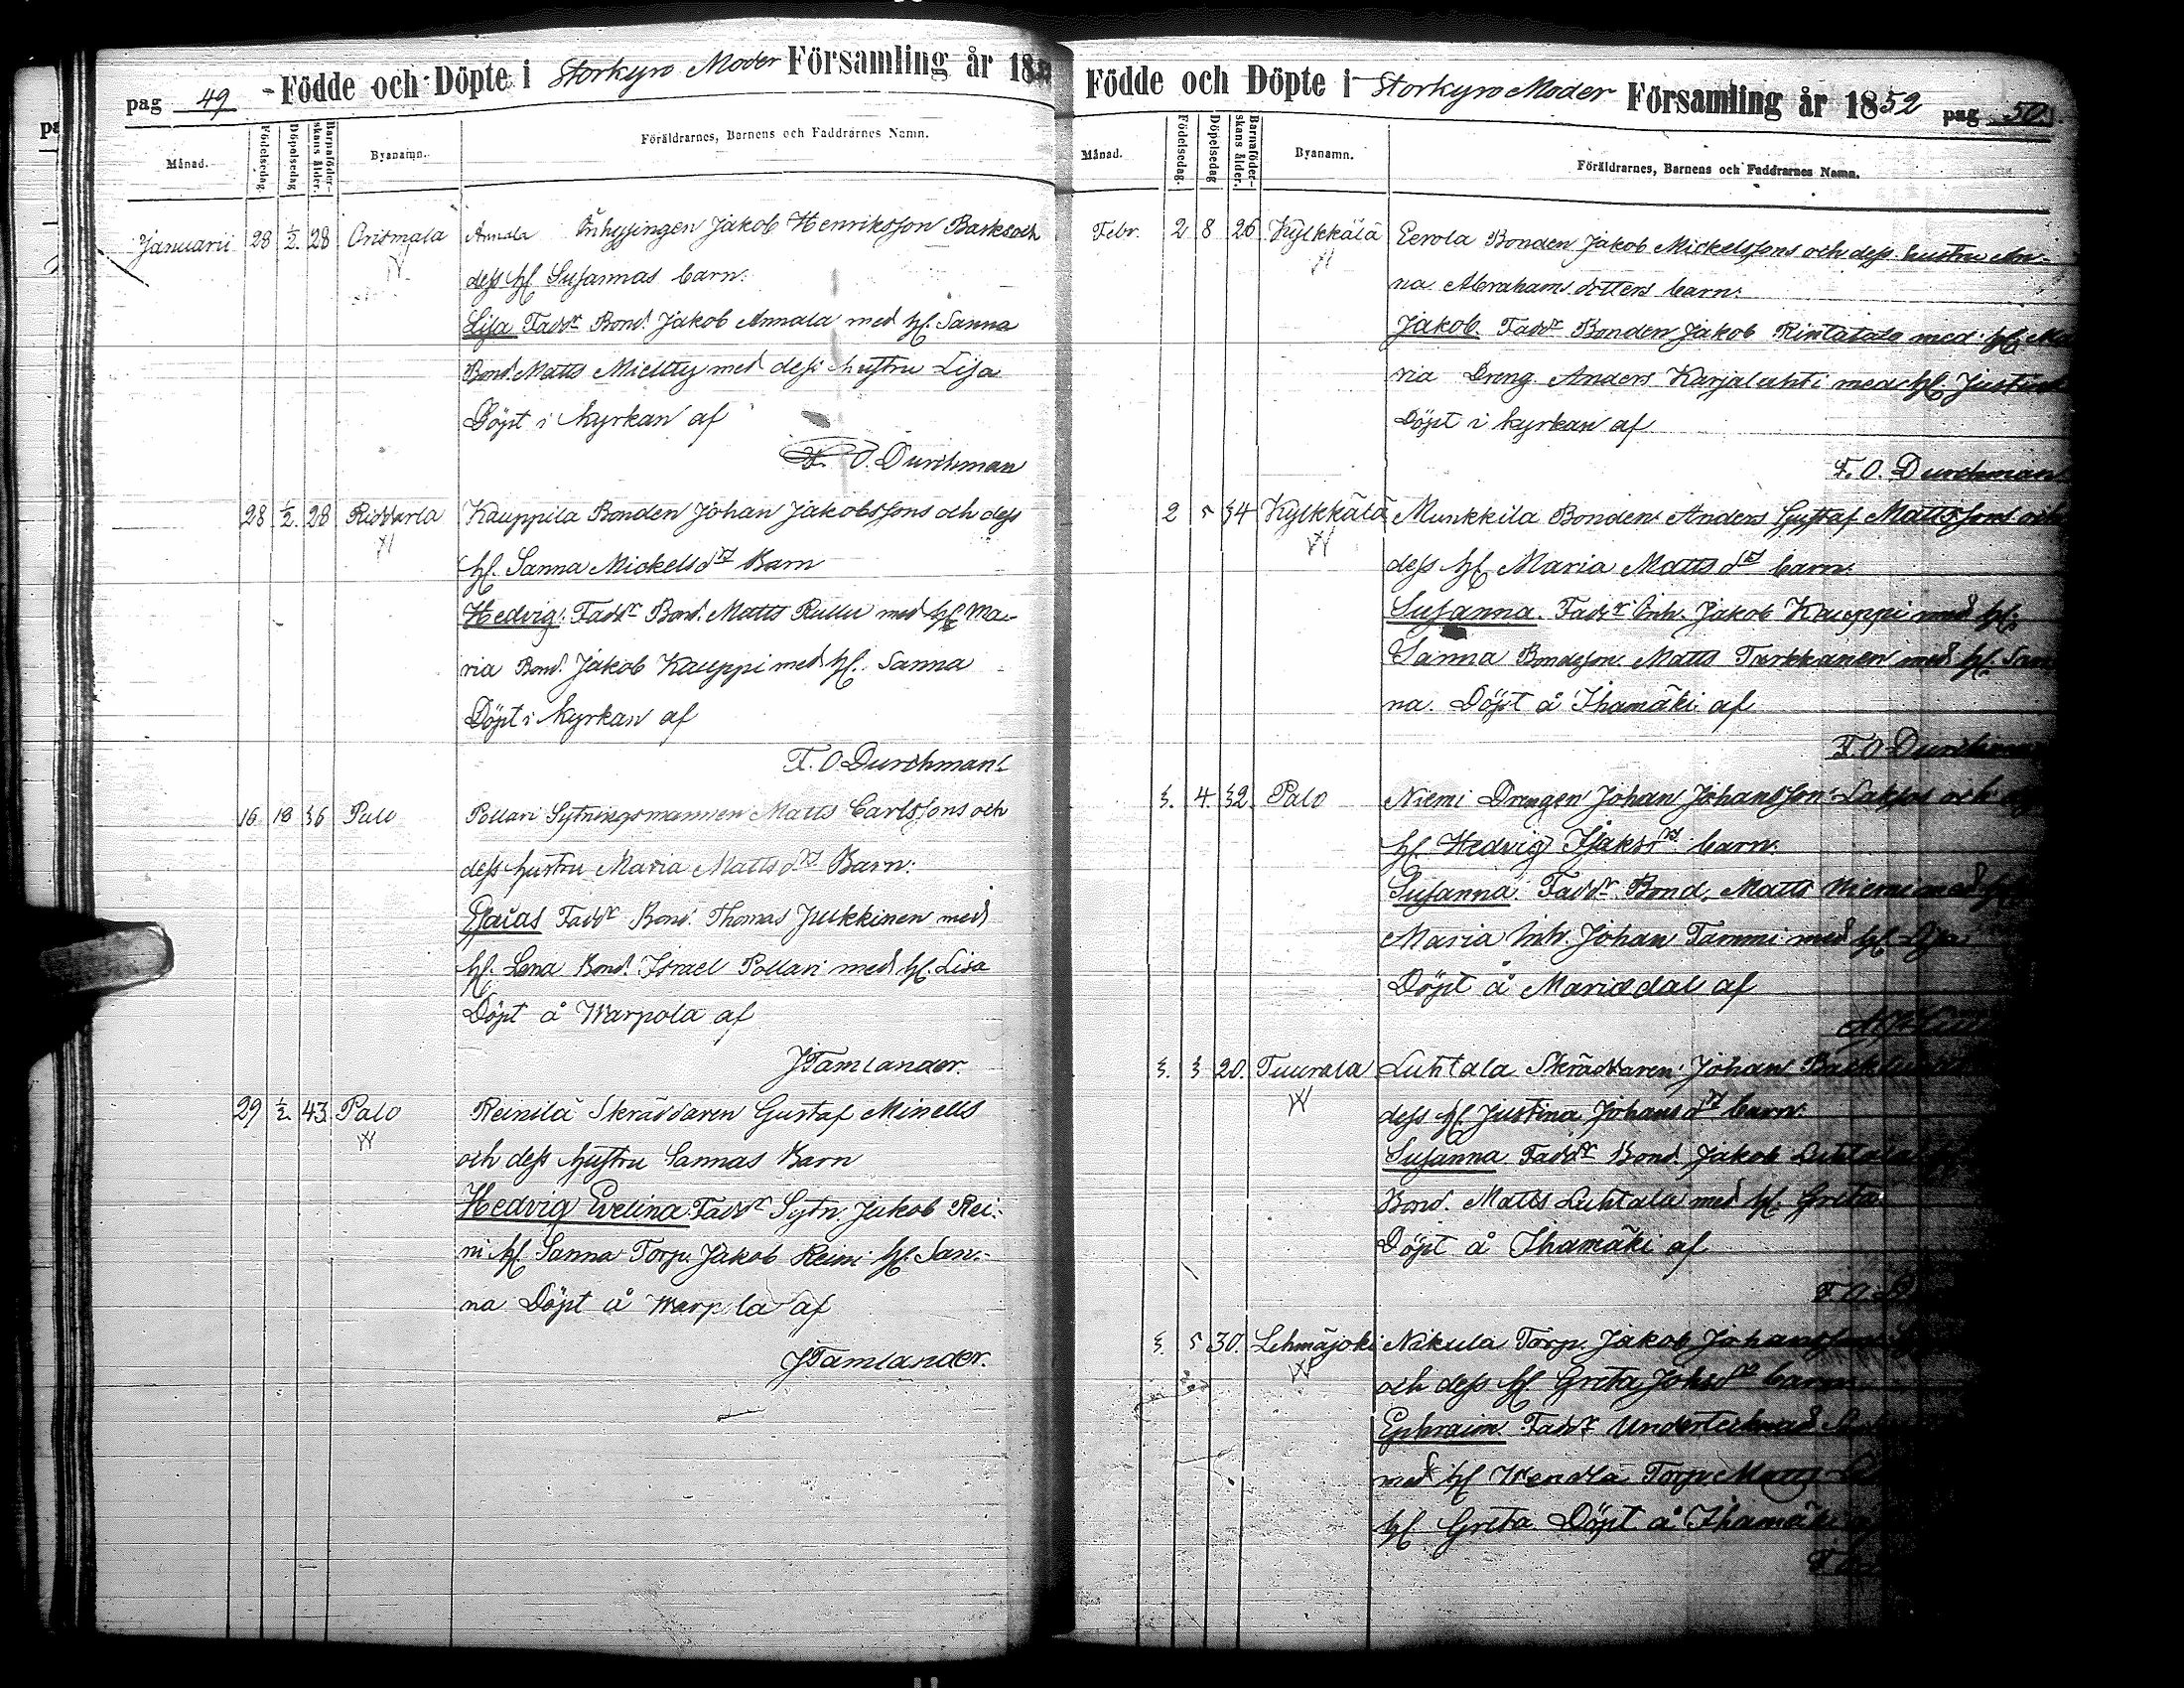 pag 49 Födde och Döpte i Storkyro Moder Församling år 18
Månad. Födelsedag. Döpelsedag Barnaföderskans ålder. Byanamn. Föräldrarnes, Barnens och Faddrarnes Namn.
Januarii 28 1/2. 28 Orismala Annala Inhysingen Jakob Henriksson Backs och
dess hf Susannas barn.
Lisa Fadd.r Bond. Jakob Annala med hf. Sanna
Bond. Matts Mieltty med dess hustru Lisa
Döpt i kyrkan af
F. O. Durchman
28 1/2 28 Riddarla Kauppila Bonden Johan Jakobssons och dess
hf. Sanna Mickelsdr Barn
Hedvig. Fadd.r Bond. Matts Rullu med hf Ma-
ria Bond. Jakob Kauppi med hf. Sanna
Döpt i kyrkan af
F. O. Durchman.
16 18 36 Palo Pollari Sytningsmannen Matts Carlssons och
dess hustru Maria Mattsdr Barn.
Esaias Fadd.r Bond. Thomas Jukkinen med
hf. Lena Bond. Israel Pollari med hf. Lisa
Döpt å Warpola af
J Tamlander.
29 1/2 43 Palo Reinilä Skräddaren Gustaf Minells
och dess hustru Sannas Barn
Hedvig Evelina. Fadd.r Sytn. Jakob Rei-
ni hf Sanna Torp. Jakob Reini hf. San-
na Döpt å Warpola af
J Tamlander.
Födde och Döpte i Storkyro Moder Församling år 1852 pag 50.
Månad. Födelsedag. Döpelsedag Barnaföderskans ålder. Byanamn. Föräldrarnes, Barnens och Faddrarnes Namn.
Febr. 2 8 26 Kylkkälä Eerola Bonden Jakob Mickelssons och dess hustru An-
na Abrahams dotters barn.
Jakob. Fadd.r Bonden Jakob Rintatalo med hf. Ma
ria Dreng Anders Karjalahti med hf. Justina
Döpt i kyrkan af
F. O. Durchman.
2 5 34 Kylkkälä Munkkila Bonden Anders Gustaf Mattssons och
dess hf Maria Mattsdr barn.
Susanna. Fadd.r Inh. Jakob Kauppi med hf.
Sanna Bondeson Matts Turkkanen med hf. San
na. Döpt å Ihamäki af
F. O. Durchman
3. 4. 32. Palo Niemi Drengen Johan Johansson Laksos och
hf. Hedvig Isaksdr barn.
Susanna. Fadd.r Bond. Matts Niemi med hf
Maria Inh. Johan Tammi med hf
Döpt å Mariedal af
3. 3 20. Tuurala Luhtala Skräddaren Johan
dess hf. Justina Johansdr barn.
Susanna Fadd.r Bond. Jakob Luhtala
Bond. Matts Luhtala med hf. Greta
Döpt å Ihamäki af
F. O.
3. 5 30. Lehmäjoki Nikula Torp. Jakob Johansson
och dess hf. Greta Johsdr barn
Ephraim. Fadd.r Undertecknad
med hf Wendla Torp. Matts
hf. Greta Döpt å Ihamäki